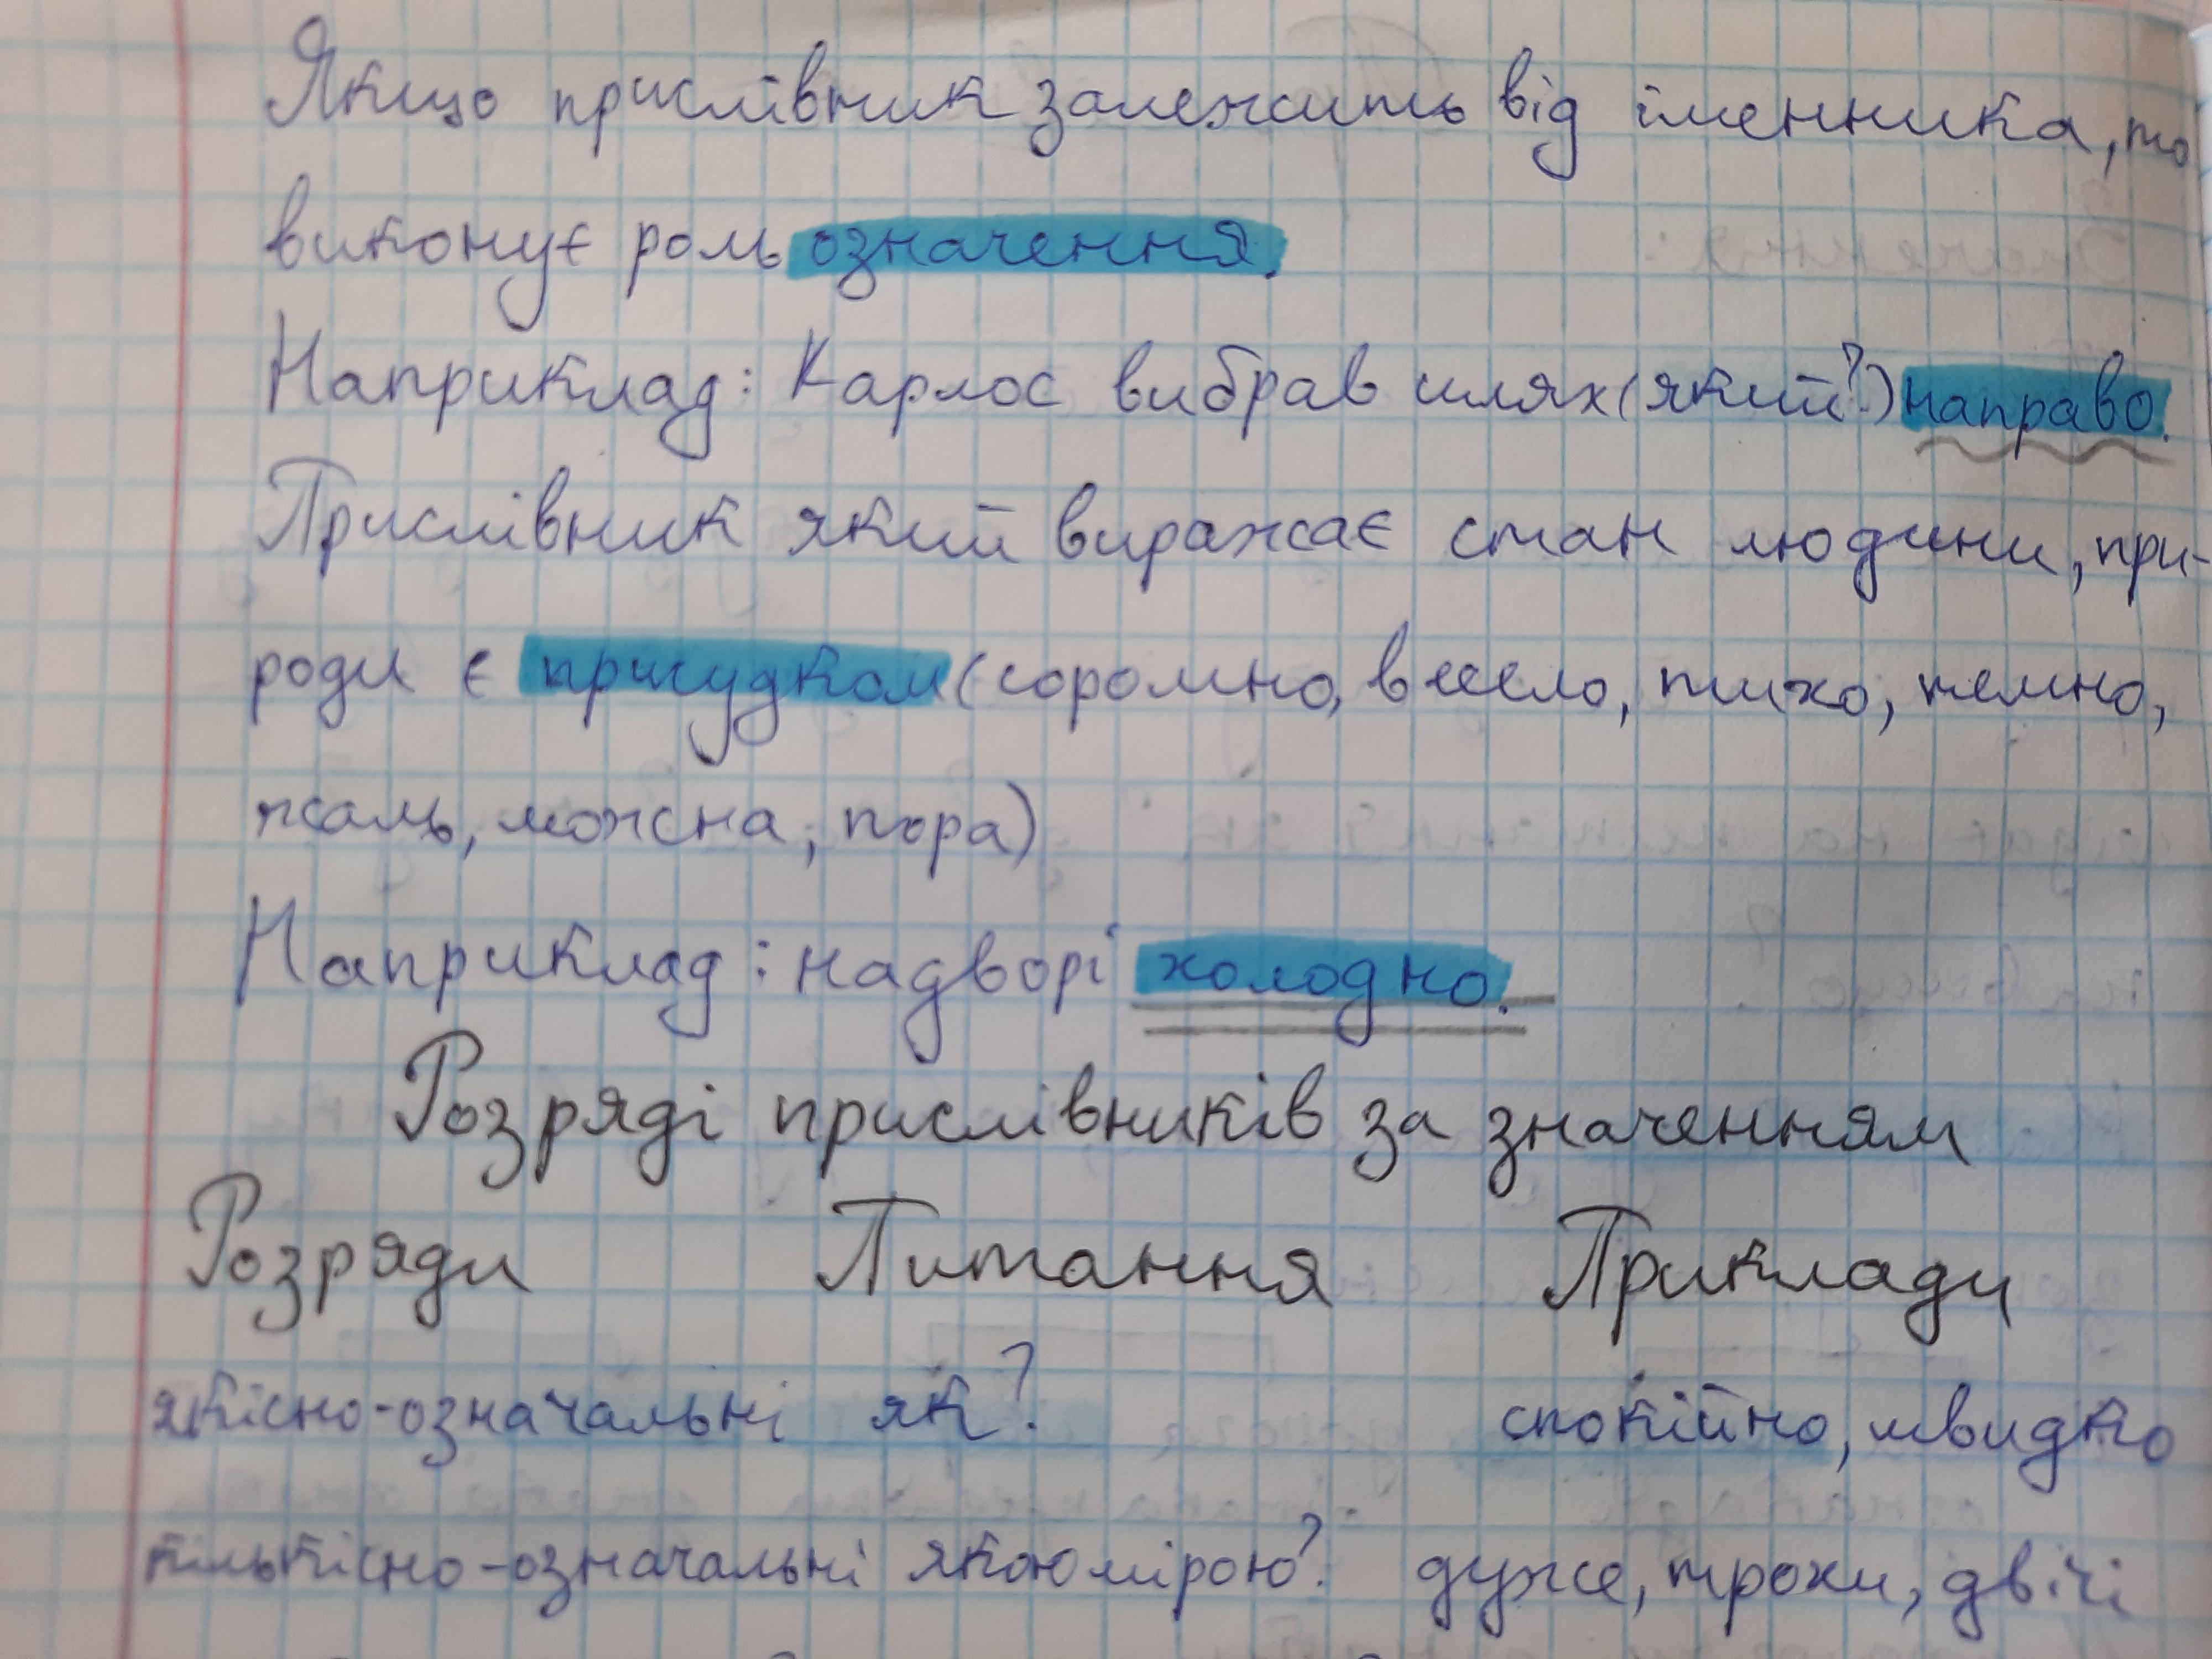 Якщо прислівник залежить від іменника, то
виконує роль означення.
Наприклад: Карлос вибрав шлях (який?) направо.
Прислівник який виражає стан людини, при-
роди є присудком (соромно, весело, тихо, темно,
жаль, можна, пора)
Наприклад: надворі холодно.
Розряді прислівників за значенням
Розряди Питання Приклади
якісно-означальні як? спокійно, швидко
кількісно-означальні якою мірою? дуже, трохи, двічі